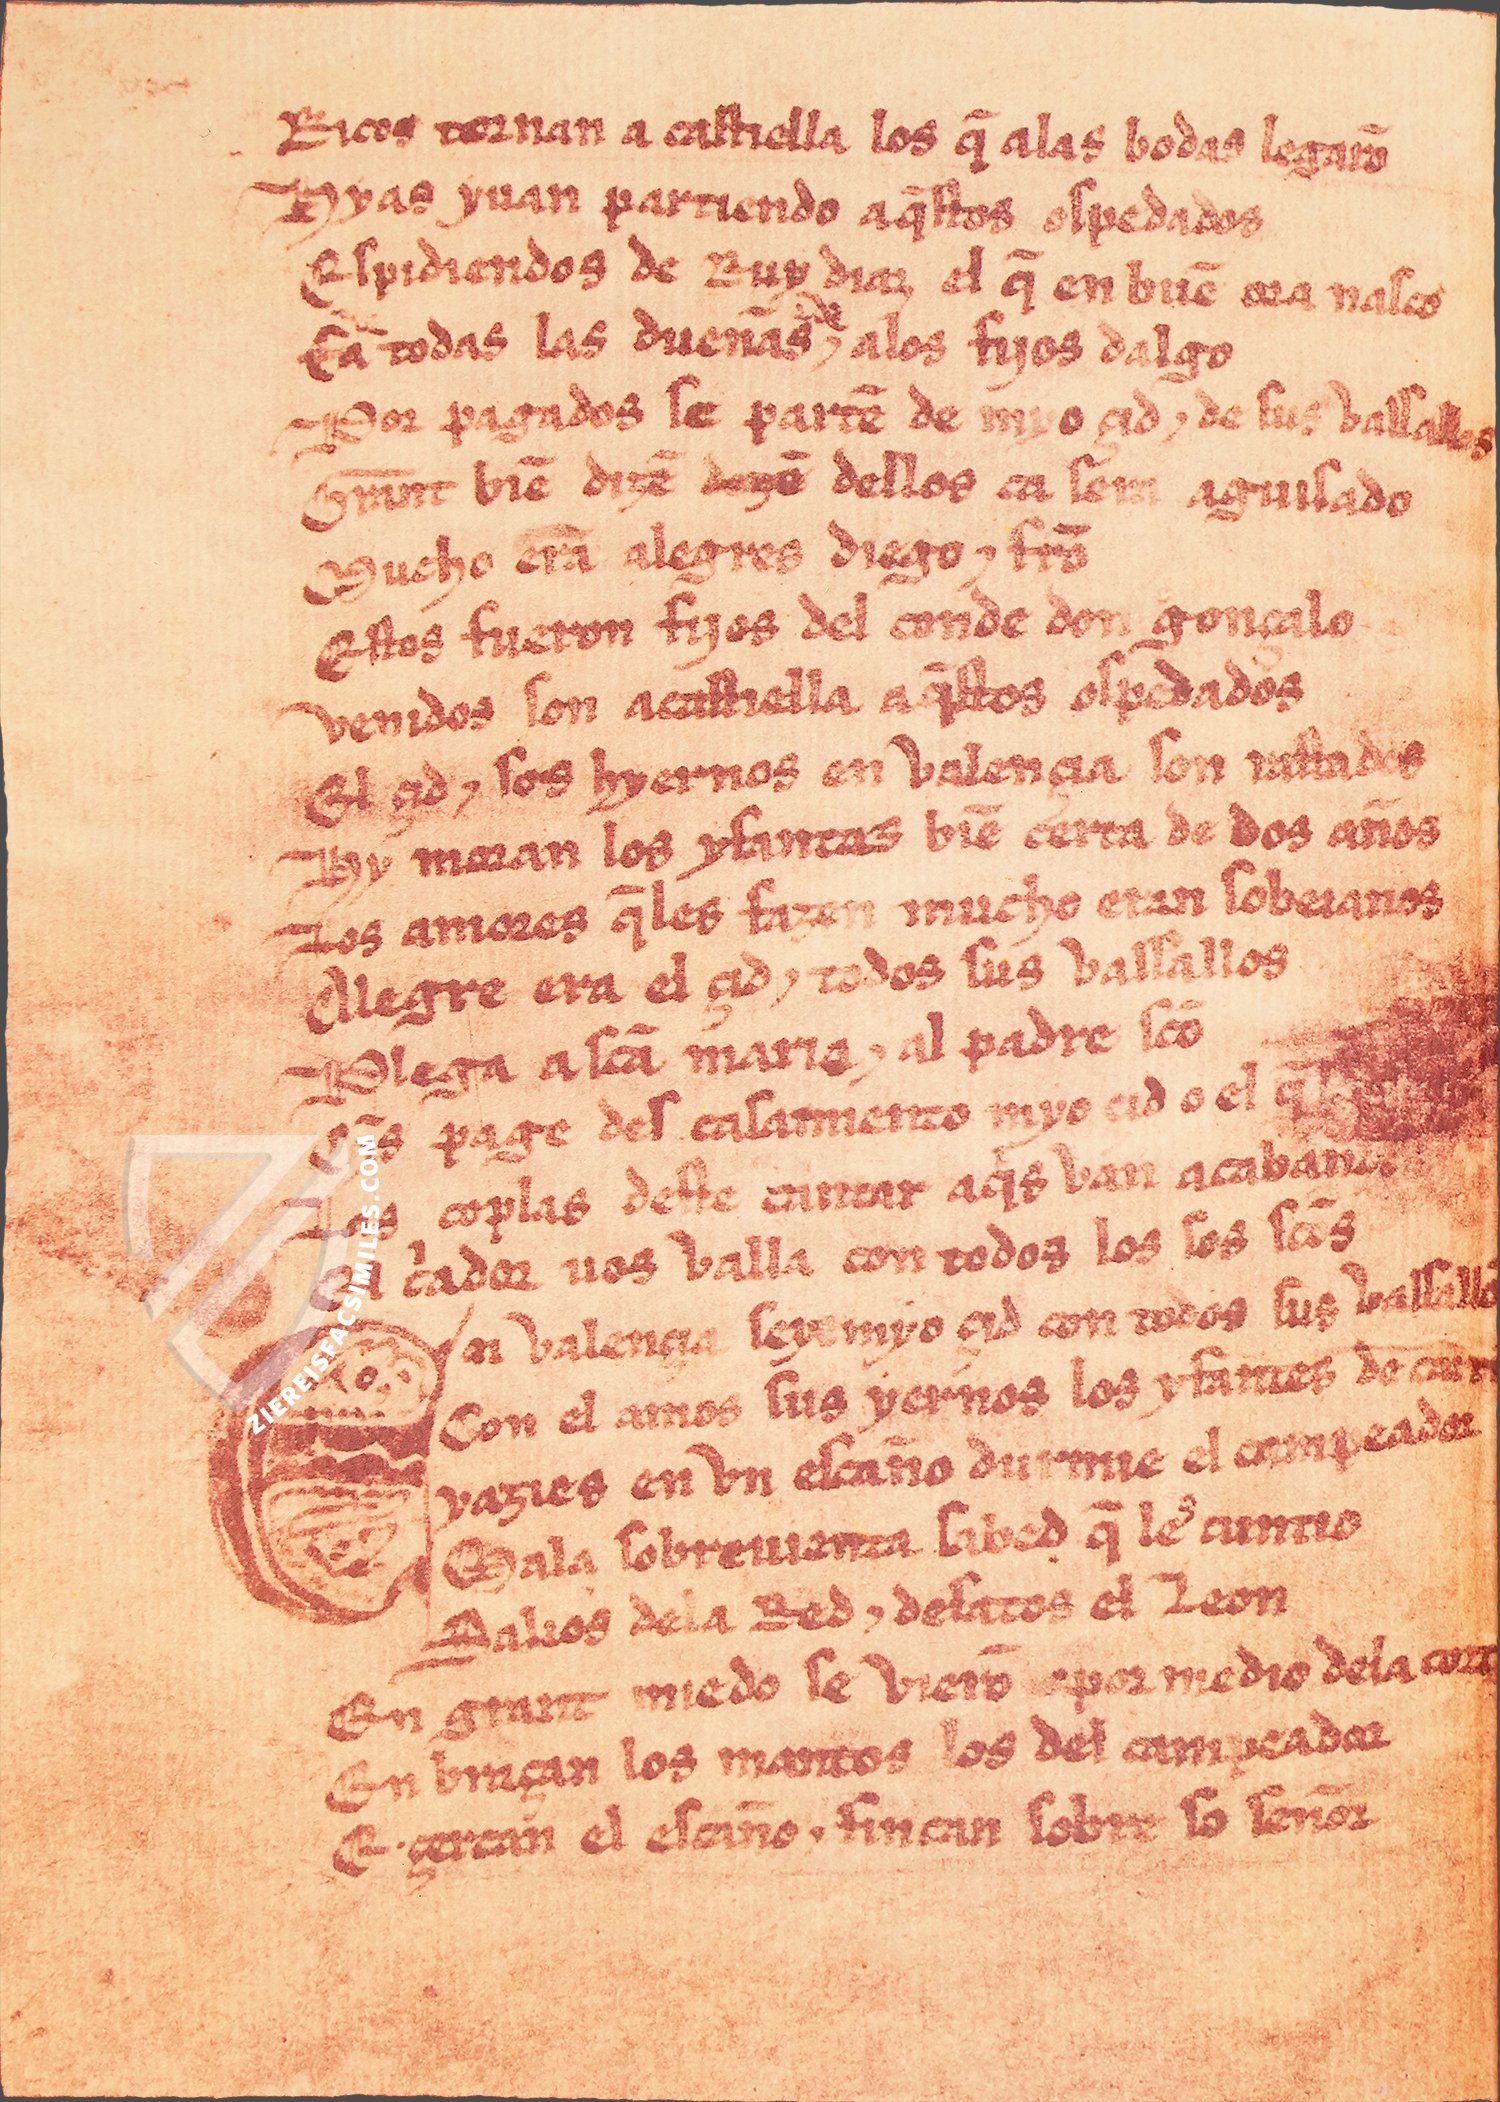 Ricos tornan a castiella los q̃ alas bodas legarõ
Hyas yuan partiendo aq̃stos ospedados
Espidiendos de Ruy diaz el q̃ en buẽ ora nasco
E a todas las dueñas ⁊ alos fijos dalgo
Por pagados se partẽ de myo çid ⁊ de sus vassallos
Grant biẽ dizẽ dellos ca sera aguisado
Mucho erã alegres diego ⁊ frrõ
Estos fueron fijos del conde don gonçalo
venidos son a castiella aq̃stos ospedados
El çid ⁊ sos hyernos en valençia son rastados
Hy moran los yfantes biẽ çerca de dos años
Los amores q̃les fazen mucho eran sobeianos
Alegre era el çid ⁊ todos sus vassallos
Plega a sc̃a maria ⁊ al padre sc̃o
Q̃s page des casamiento myo çid o el q̃
Las coplas deste cantar aq̃s van acabando
El c̾ador uos valla con todos los sos sc̃s
En valençia seye myo çid con todos sus vassallos
Con el amos sus yernos los yfantes de carr
yazies en vn escaño durmie el campeador
Mala sobreuienta sabed q̃ les cuntio
Salios dela Red ⁊ desatos el Leon
En grant miedo se vierõ por medio dela cort
En braçan los mantos los del campeador
E çercan el escaño ⁊ fincan sobre so señor
ZIEREISFACSIMILES.COM